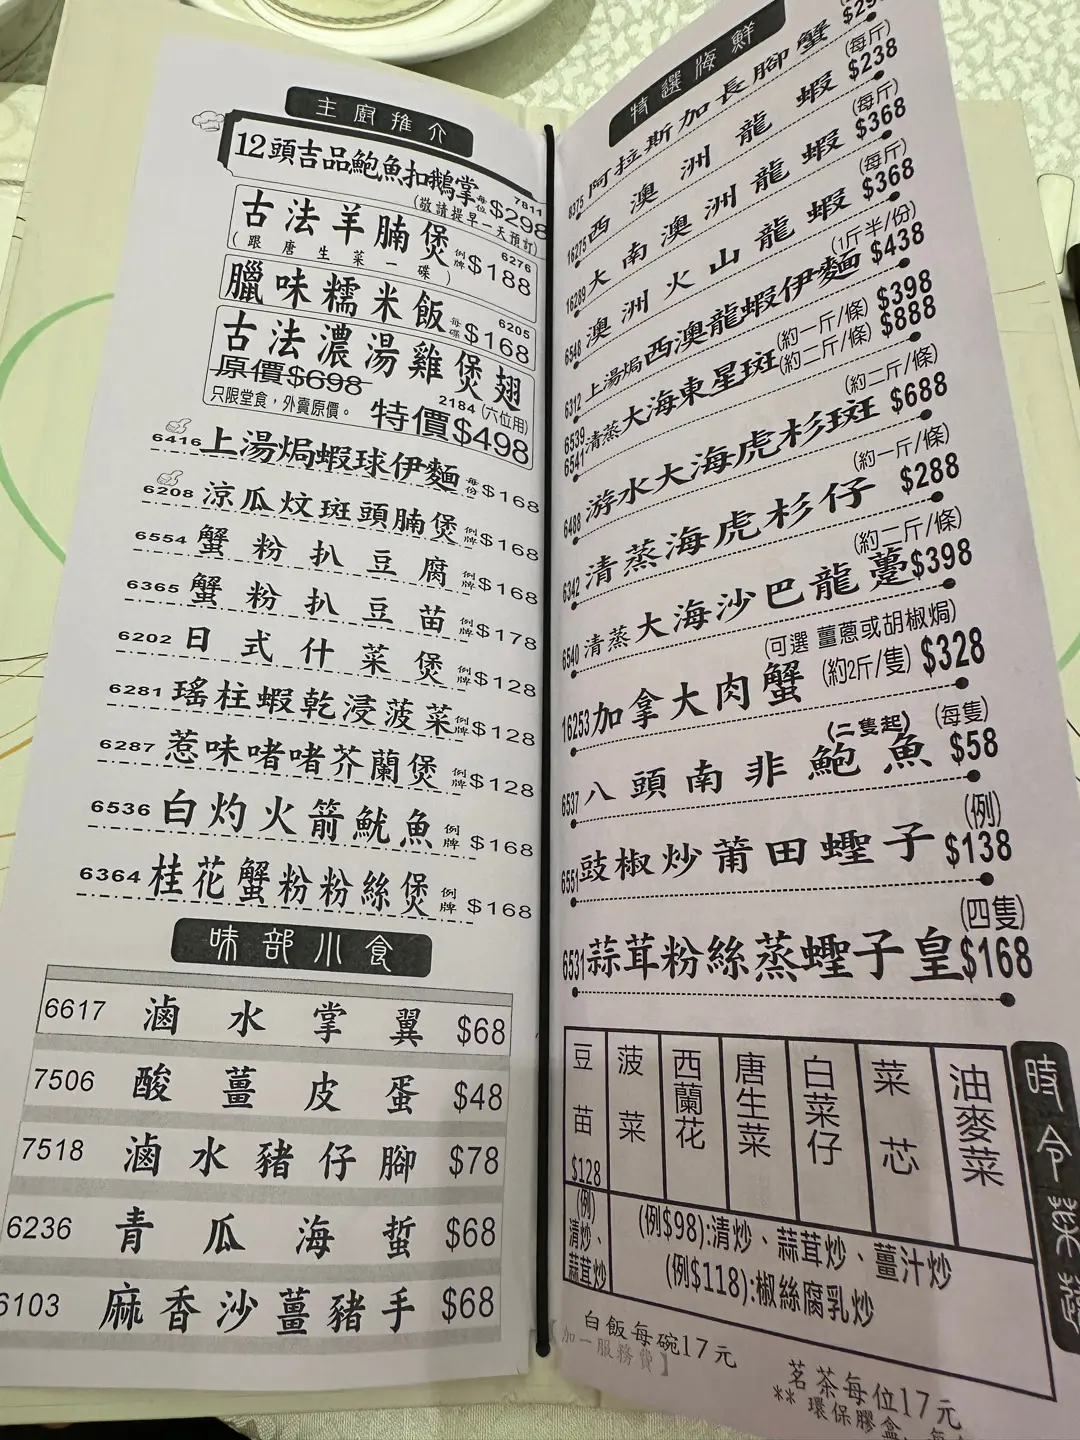 主廚推介
12頭吉品鮑魚扣鵝掌 每位 $298
7811
(敬請提早一天預訂)
古法羊腩煲 例牌 $188
6276
(跟唐生菜一碟)
臘味糯米飯 每碟 $168
6205
古法濃湯雞煲翅
原價$698
2184 (六位用)
只限堂食，外賣原價。 特價$498
6416 上湯焗蝦球伊麵 每份 $168
6208 涼瓜炆斑頭腩煲 例牌 $168
6554 蟹粉扒豆腐 例牌 $168
6365 蟹粉扒豆苗 例牌 $178
6202 日式什菜煲 例牌 $128
6281 瑤柱蝦乾浸菠菜 例牌 $128
6287 惹味啫啫芥蘭煲 例牌 $128
6536 白灼火箭魷魚 例牌 $168
6364 桂花蟹粉粉絲煲 例牌 $168
味部小食
6617 滷水掌翼 $68
7506 酸薑皮蛋 $48
7518 滷水豬仔腳 $78
6236 青瓜海蜇 $68
6103 麻香沙薑豬手 $68
特選海鮮
8375 阿拉斯加長腳蟹
16275 西澳洲龍蝦 (每斤) $238
16289 大南澳洲龍蝦 (每斤) $368
6548 澳洲火山龍蝦 (每斤) $368
6312 上湯焗西澳龍蝦伊麵 (1斤半/份) $438
6539 清蒸大海東星斑 (約一斤/條) $398
6541 (約二斤/條) $888
6488 游水大海虎杉斑 (約二斤/條) $688
6342 清蒸海虎杉仔 (約一斤/條) $288
6540 清蒸大海沙巴龍躉 (約二斤/條) $398
(可選 薑蔥或胡椒焗)
16253 加拿大肉蟹 (約2斤/隻) $328
6537 八頭南非鮑魚 (二隻起) (每隻) $58
6551 豉椒炒莆田蟶子 (例) $138
6531 蒜茸粉絲蒸蟶子皇 (四隻) $168
時令菜蔬
豆苗 $128 (例) 清炒、蒜茸炒
菠菜
西蘭花
唐生菜
白菜仔
菜芯
油麥菜
(例$98):清炒、蒜茸炒、薑汁炒
(例$118):椒絲腐乳炒
白飯每碗17元
【加一服務費】
茗茶每位17元
** 環保膠盒